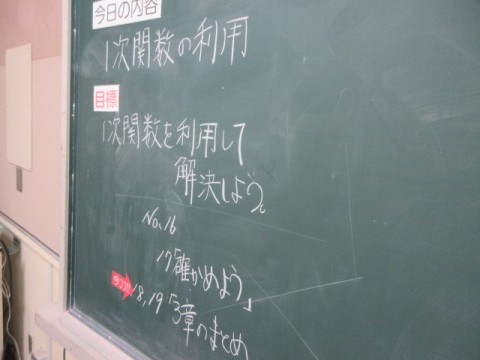 今日の内容
1次関数の利用
目標
1次関数を利用して
解決しよう。
No.16
17「確かめよう」
18,19「3章のまとめ